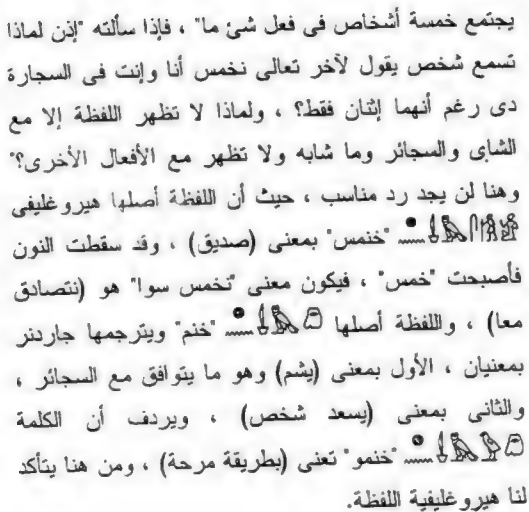 يجتمع خمسة أشخاص فى فعل شئ ما" ، فإذا سألته "إذن لماذا
تسمع شخص يقول لآخر تعالى نخمس أنا وإنت فى السجارة
دى رغم أنهما إثنان فقط؟ ، ولماذا لا تظهر اللفظة إلا مع
الشاى والسجائر وما شابه ولا تظهر مع الأفعال الأخرى؟"
وهنا لن يجد رد مناسب ، حيث أن اللفظة أصلها هيروغليفى
"خنمس" بمعنى (صديق) ، وقد سقطت النون
فأصبحت "خمس" ، فيكون معنى "نخمس سوا" هو (نتصادق
معا) ، واللفظة أصلها "خنم" ويترجمها جاردنر
بمعنيان ، الأول بمعنى (يشم) وهو ما يتوافق مع السجائر ،
والثانى بمعنى (يسعد شخص) ، ويردف أن الكلمة
"خنمو" تعنى (بطريقة مرحة) ، ومن هنا يتأكد
لنا هيروغليفية اللفظة.